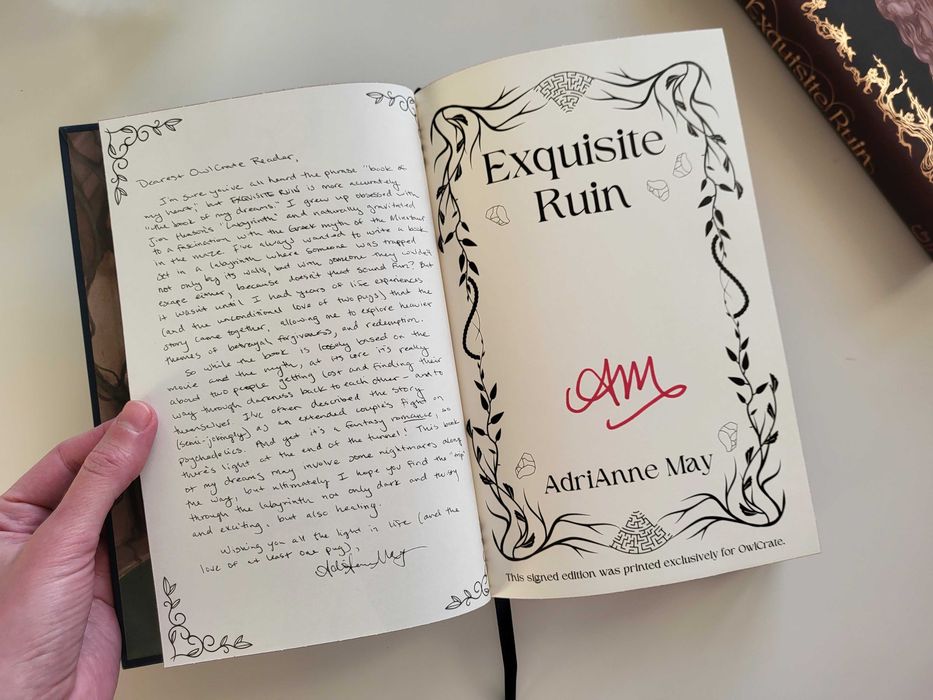 Dearest OwlCrate Reader,
I'm sure you've all heard the phrase "book of
my heart," but EXQUISITE RUIN is more accurately
"the book of my dreams." I grew up obsessed with
Jim Henson's "Labyrinth" and naturally gravitated
to a fascination with the Greek myth of the Minotaur
in the maze. I've always wanted to write a book
set in a labyrinth where someone was trapped
not only by its walls, but with someone they couldn't
escape either, because doesn't that sound fun? But
it wasn't until I had years of life experiences
(and the unconditional love of two pugs) that the
story came together, allowing me to explore heavier
themes of betrayal, forgiveness, and redemption.
So while the book is loosely based on the
movie and the myth, at its core it's really
about two people getting lost and finding their
way through darkness back to each other - and to
themselves. I've often described the story
(semi-jokingly) as an extended couple's fight on
psychedelics. And yet it's a fantasy romance, so
there's light at the end of the tunnel! This book
of my dreams may involve some nightmares along
the way, but ultimately I hope you find the "trip"
through the labyrinth not only dark and twisty
and exciting, but also healing.
Wishing you all the light in life (and the
love of at least one pug),
AdriAnne May
Exquisite
Ruin
AM
AdriAnne May
This signed edition was printed exclusively for OwlCrate.
Exquisite Ruin